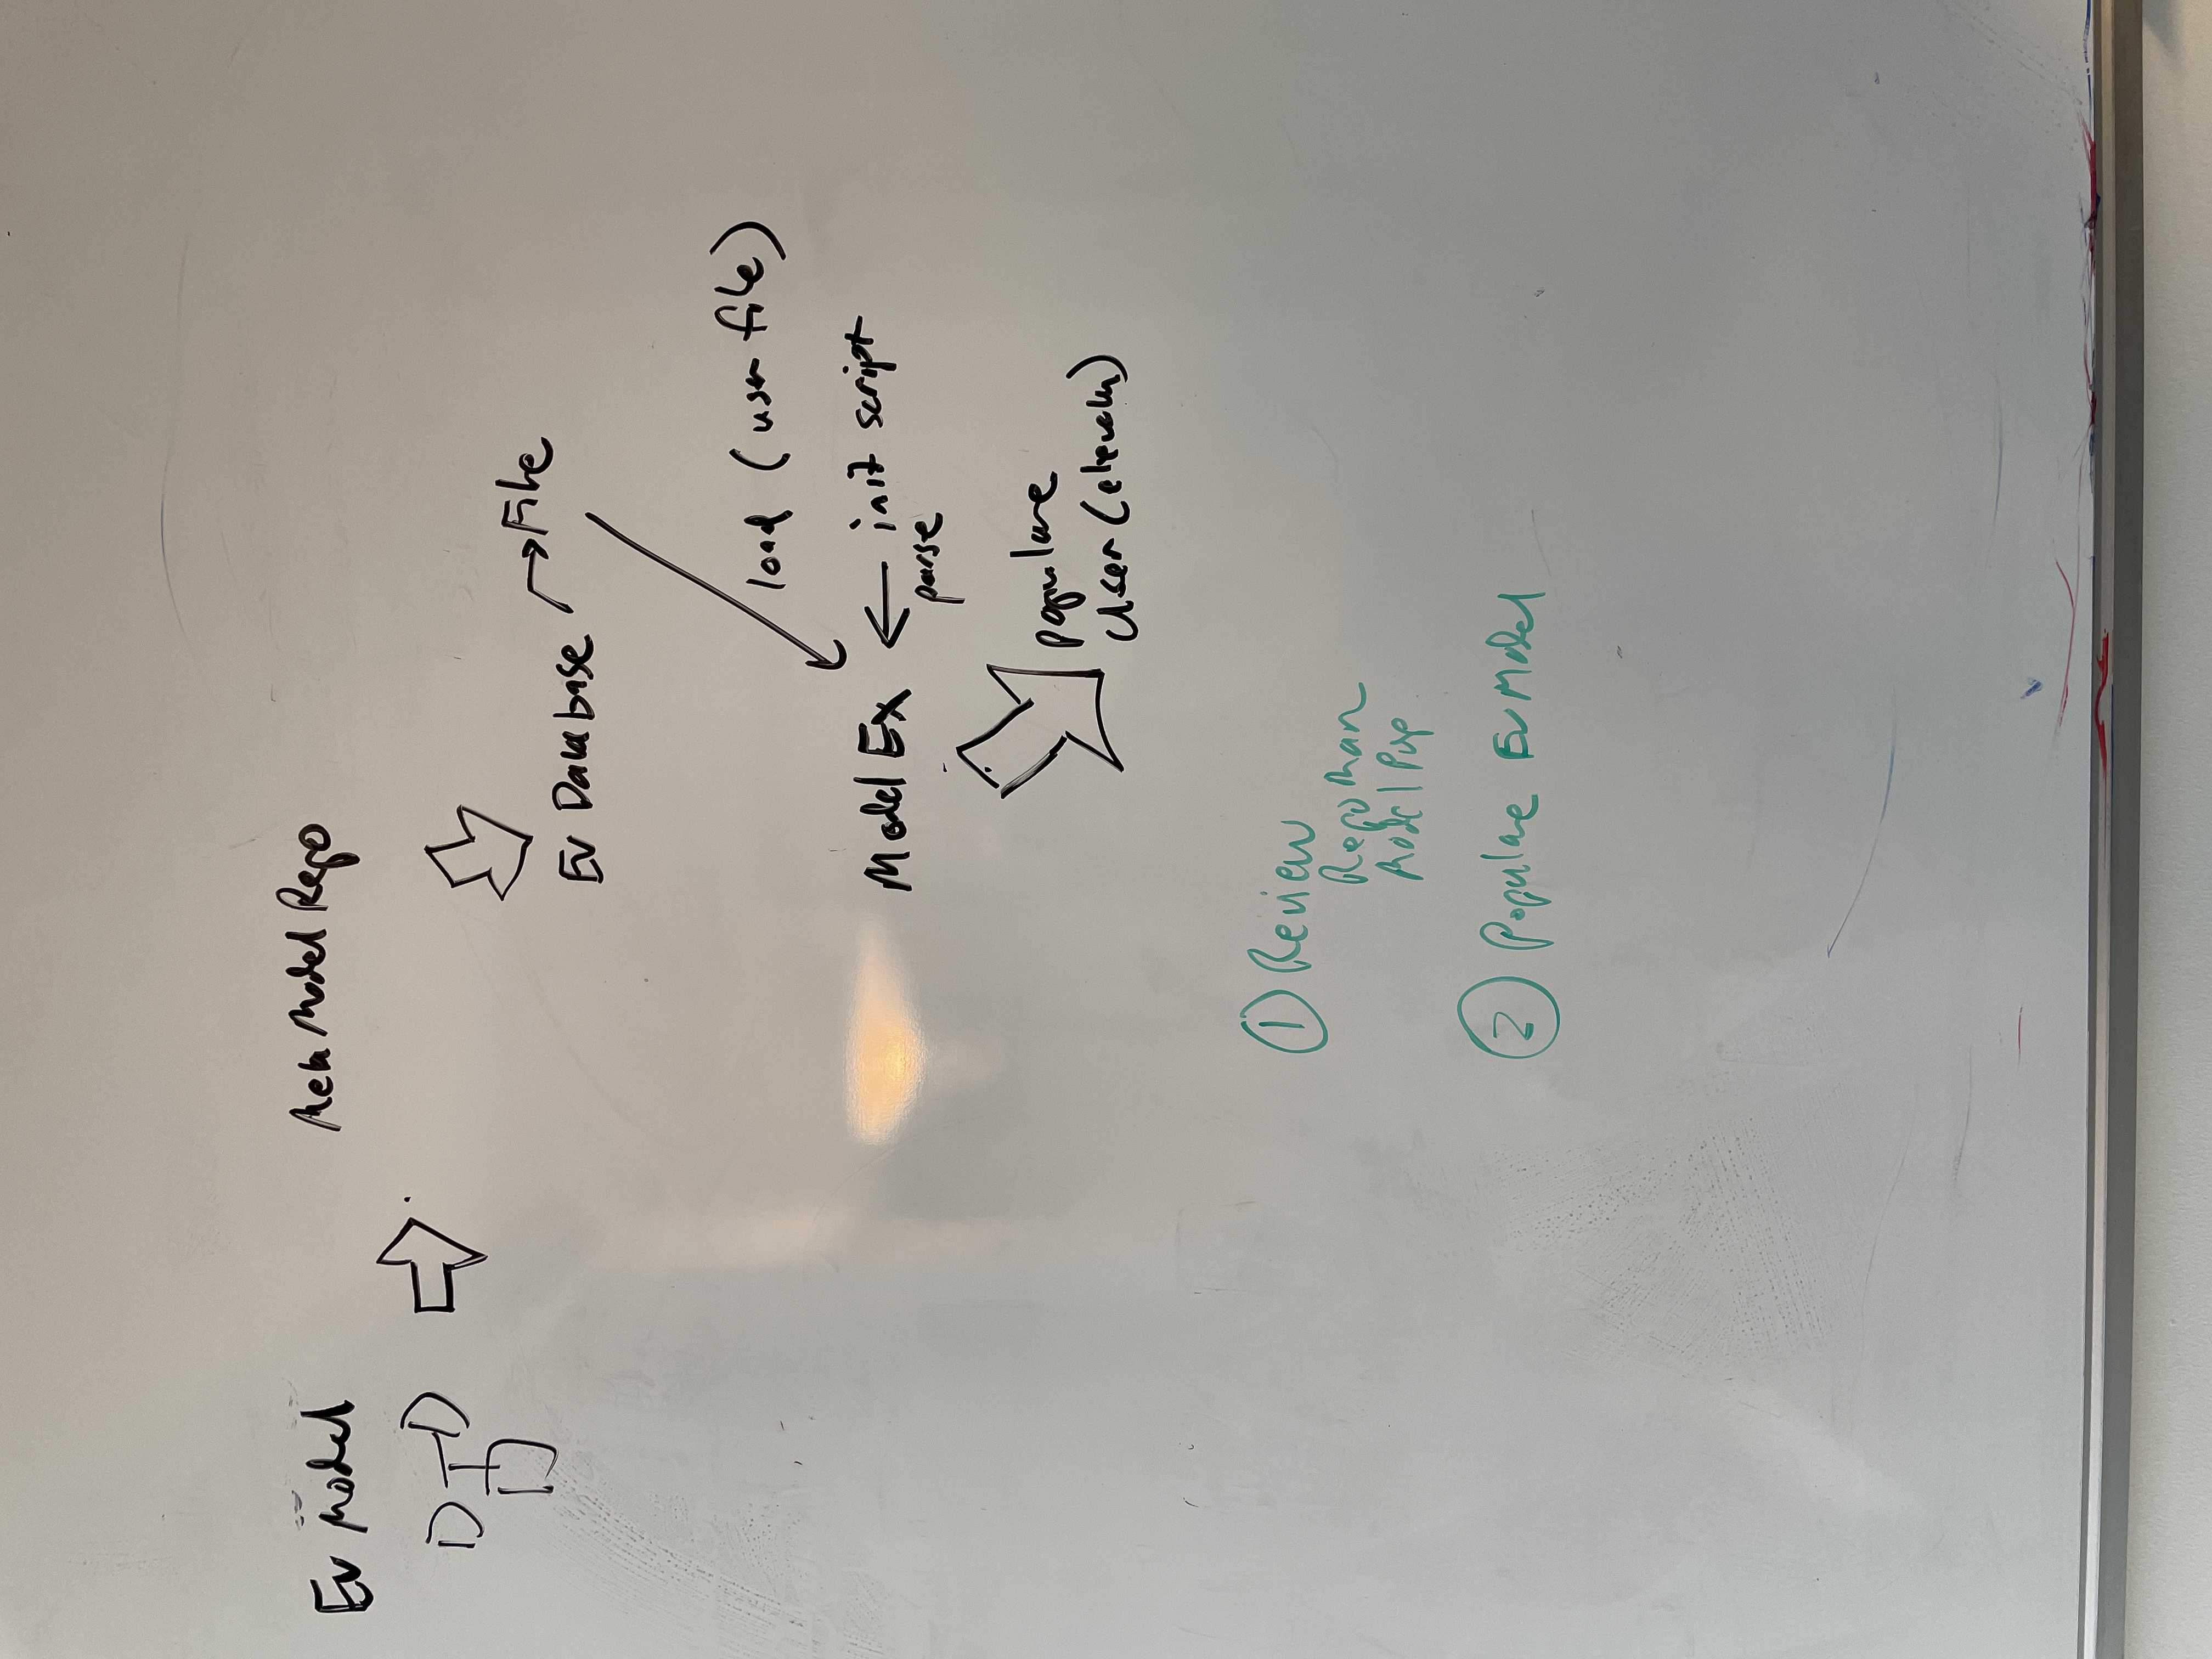 Ev Model
Meta Model Repo
Ev Database
File
load (user file)
Model Ex
init script
parse
populate
User (elevator)
1 Review
Repo Man
Model Pop
2 Populate Ev Model